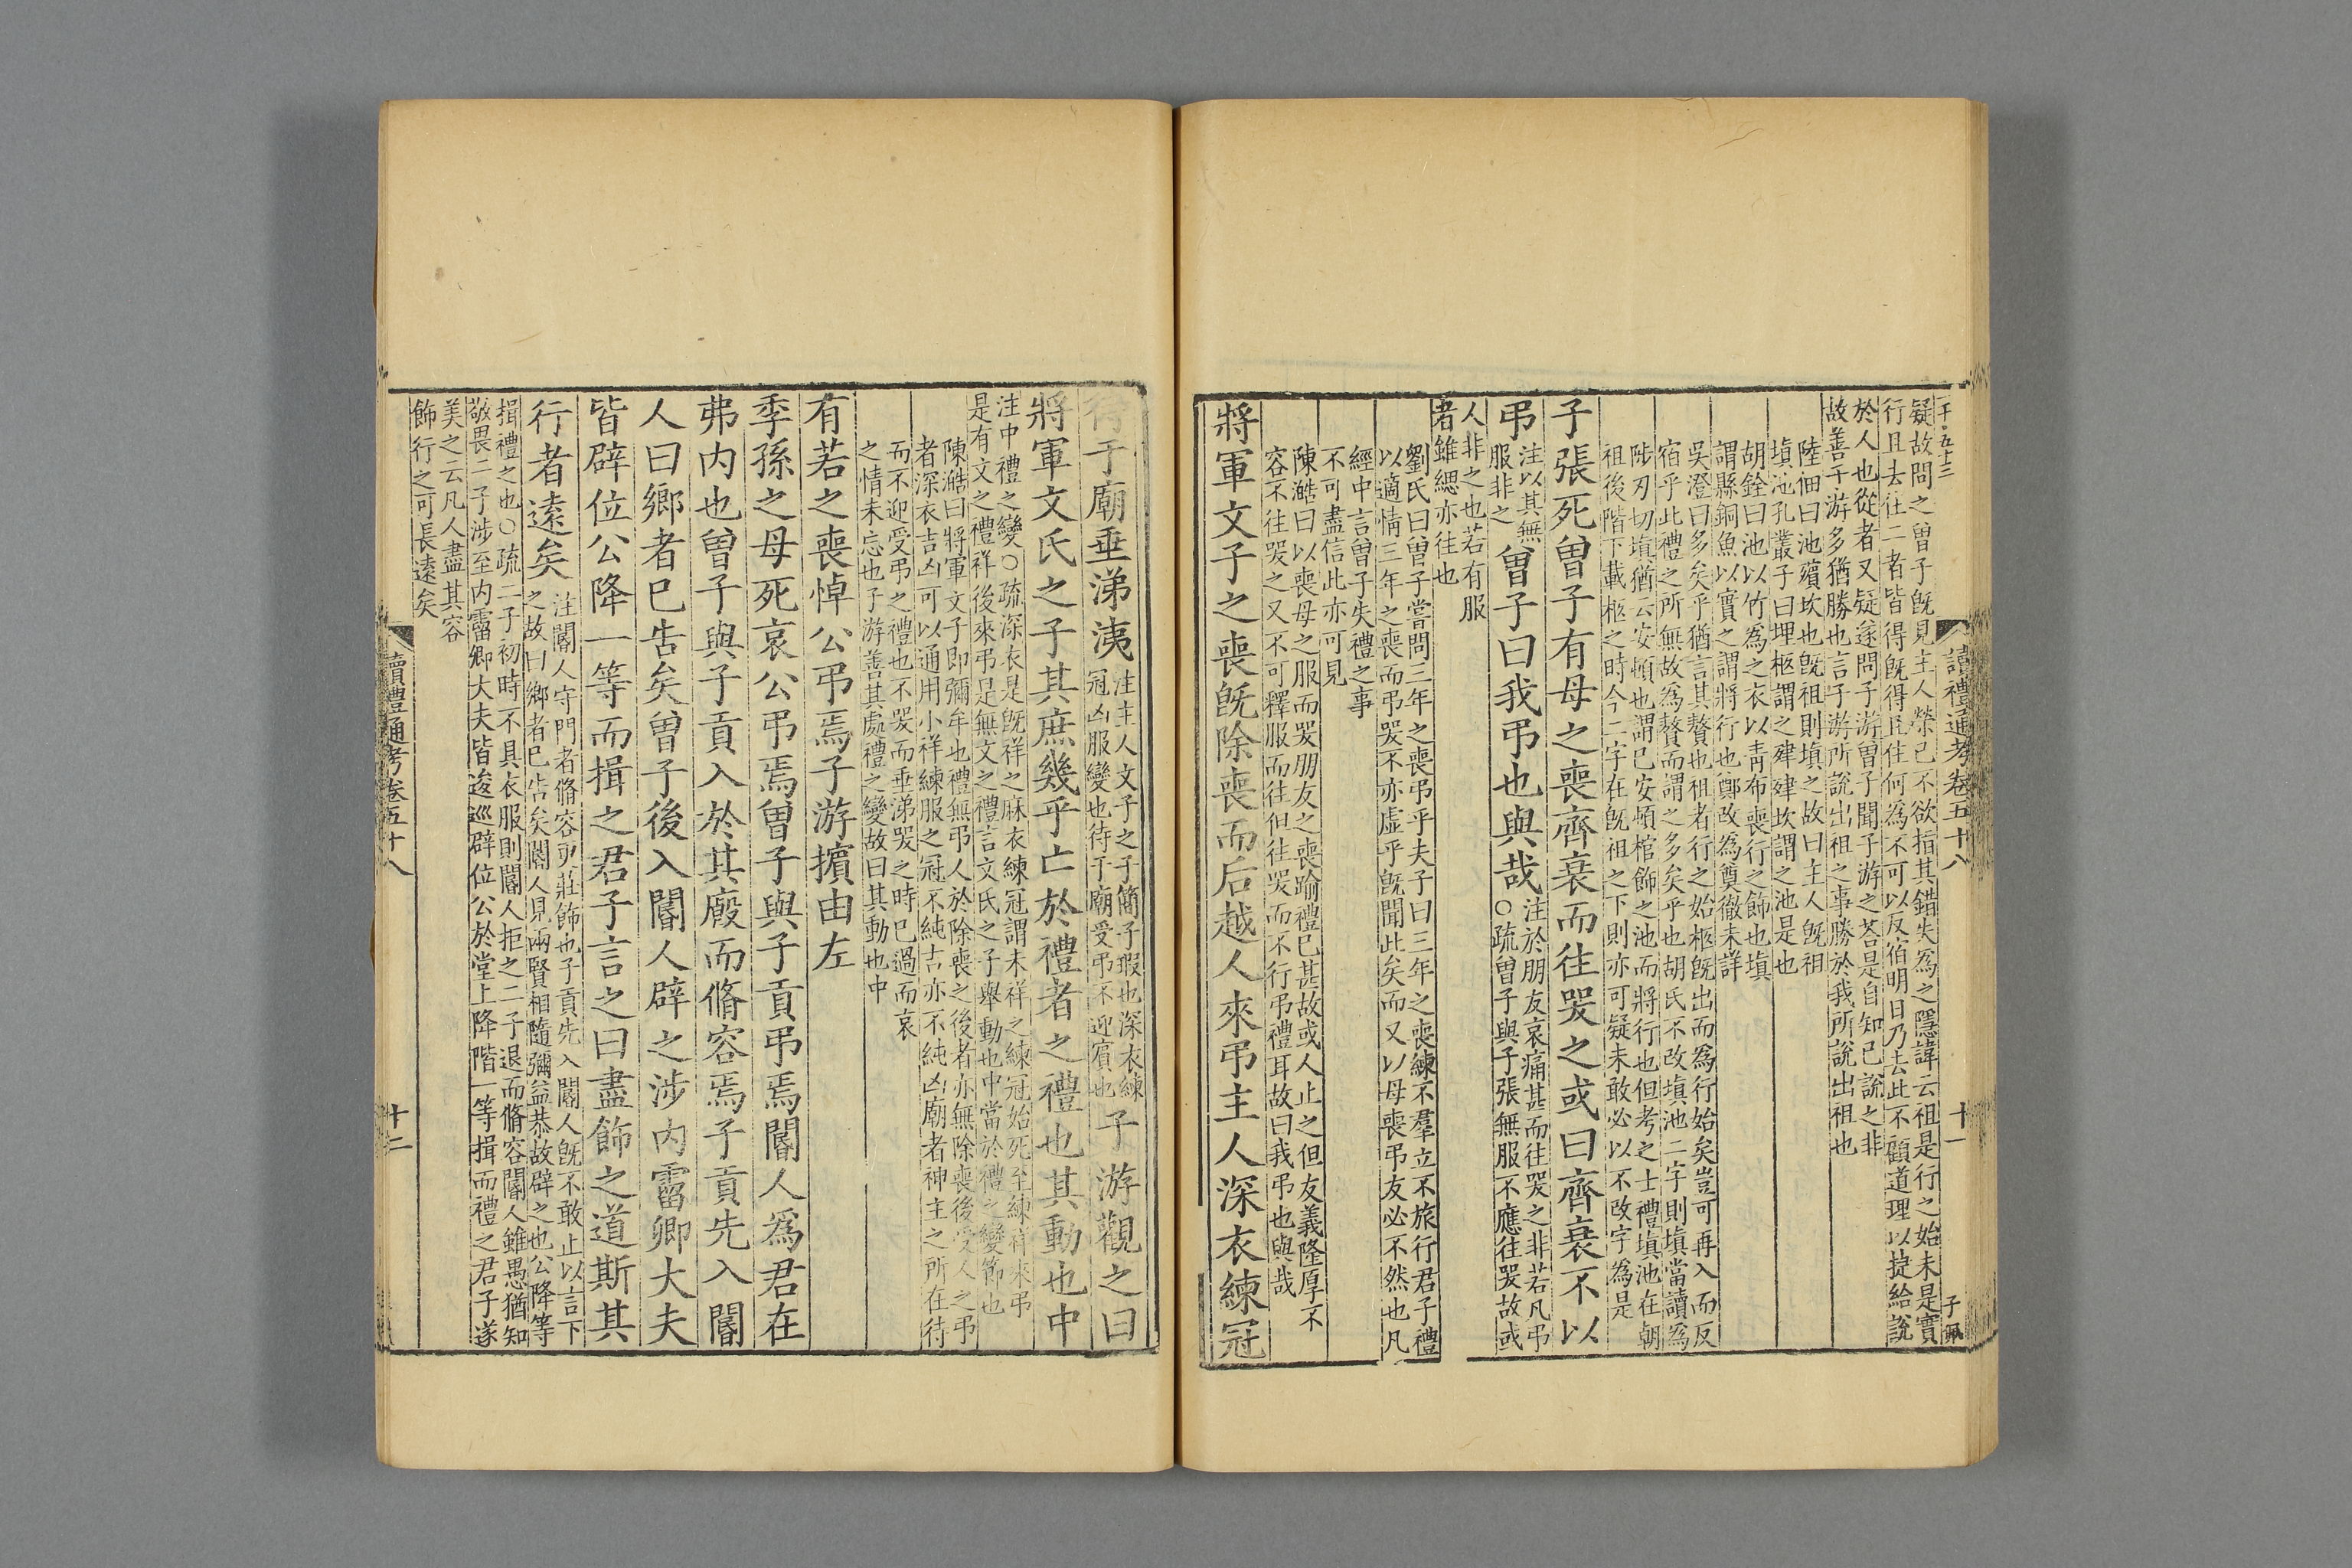 一千五十三
讀禮通考卷五十八 十一 子珮
疑故問之曾子旣見主人榮已不欲指其錯失爲之隱諱云祖是行之始未是實
行且去住二者皆得旣得且住何爲不可以反宿明日乃去此不顧道理以捷給說
於人也從者又疑遂問子游曾子聞子游之荅是自知已說之非
故善子游多猶勝也言子游所說出祖之事勝於我所說出祖也
陸佃曰池殯坎也旣祖則塡之故曰主人旣祖
塡池孔叢子曰埋柩謂之肂肂坎謂之池是也
胡銓曰池以竹爲之衣以靑布喪行之飾也塡
謂縣銅魚以實之謂將行也鄭改爲奠徹未詳
吳澄曰多矣乎猶言其贅也祖者行之始柩旣出而爲行始矣豈可再入而反
宿乎此禮之所無故爲贅而謂之多矣乎也胡氏不改塡池二字則塡當讀爲
陟刃切塡猶云安頓也謂已安頓棺飾之池而將行也但考之士禮塡池在朝
祖後階下載柩之時今二字在旣祖之下則亦可疑未敢必以不改字爲是
子張死曾子有母之喪齊衰而往哭之或曰齊衰不以
弔 注以其無
服非之 曾子曰我弔也與哉 注於朋友哀痛甚而往哭之非若凡弔
○疏曾子與子張無服不應往哭故或
人非之也若有服
者雖緦亦往也
劉氏曰曾子嘗問三年之喪弔乎夫子曰三年之喪練不羣立不旅行君子禮
以適情三年之喪而弔哭不亦虛乎旣聞此矣而又以母喪弔友必不然也凡
經中言曾子失禮之事
不可盡信此亦可見
陳澔曰以喪母之服而哭朋友之喪踰禮已甚故或人止之但友義隆厚不
容不往哭之又不可釋服而往但往哭而不行弔禮耳故曰我弔也與哉
將軍文子之喪旣除喪而后越人來弔主人深衣練冠
待于廟垂涕洟 注主人文子之子簡子瑕也深衣練
冠凶服變也待于廟受弔不迎賓也 子游觀之曰
將軍文氏之子其庶幾乎亡於禮者之禮也其動也中
注中禮之變○疏深衣是旣祥之麻衣練冠謂未祥之練冠始死至練祥來弔
是有文之禮祥後來弔是無文之禮言文氏之子舉動也中當於禮之變節也
陳澔曰將軍文子即彌牟也禮無弔人於除喪之後者亦無除喪後受人之弔
者深衣吉凶可以通用小祥練服之冠不純吉亦不純凶廟者神主之所在待
而不迎受弔之禮也不哭而垂涕哭之時已過而哀
之情未忘也子游善其處禮之變故曰其動也中
有若之喪悼公弔焉子游擯由左
季孫之母死哀公弔焉曾子與子貢弔焉閽人爲君在
弗內也曾子與子貢入於其廄而脩容焉子貢先入閽
人曰鄉者已告矣曾子後入閽人辟之涉內霤卿大夫
皆辟位公降一等而揖之君子言之曰盡飾之道斯其
行者遠矣 注閽人守門者脩容更莊飾也子貢先入閽人旣不敢止以言下
之故曰鄉者已告矣閽人見兩賢相隨彌益恭故辟之也公降等
揖禮之也○疏二子初時不具衣服則閽人拒之二子退而脩容閽人雖愚猶知
敬畏二子涉至內霤卿大夫皆逡巡辟位公於堂上降階一等揖而禮之君子遂
美之云凡人盡其容
飾行之可長遠矣
讀禮通考卷五十八 十二